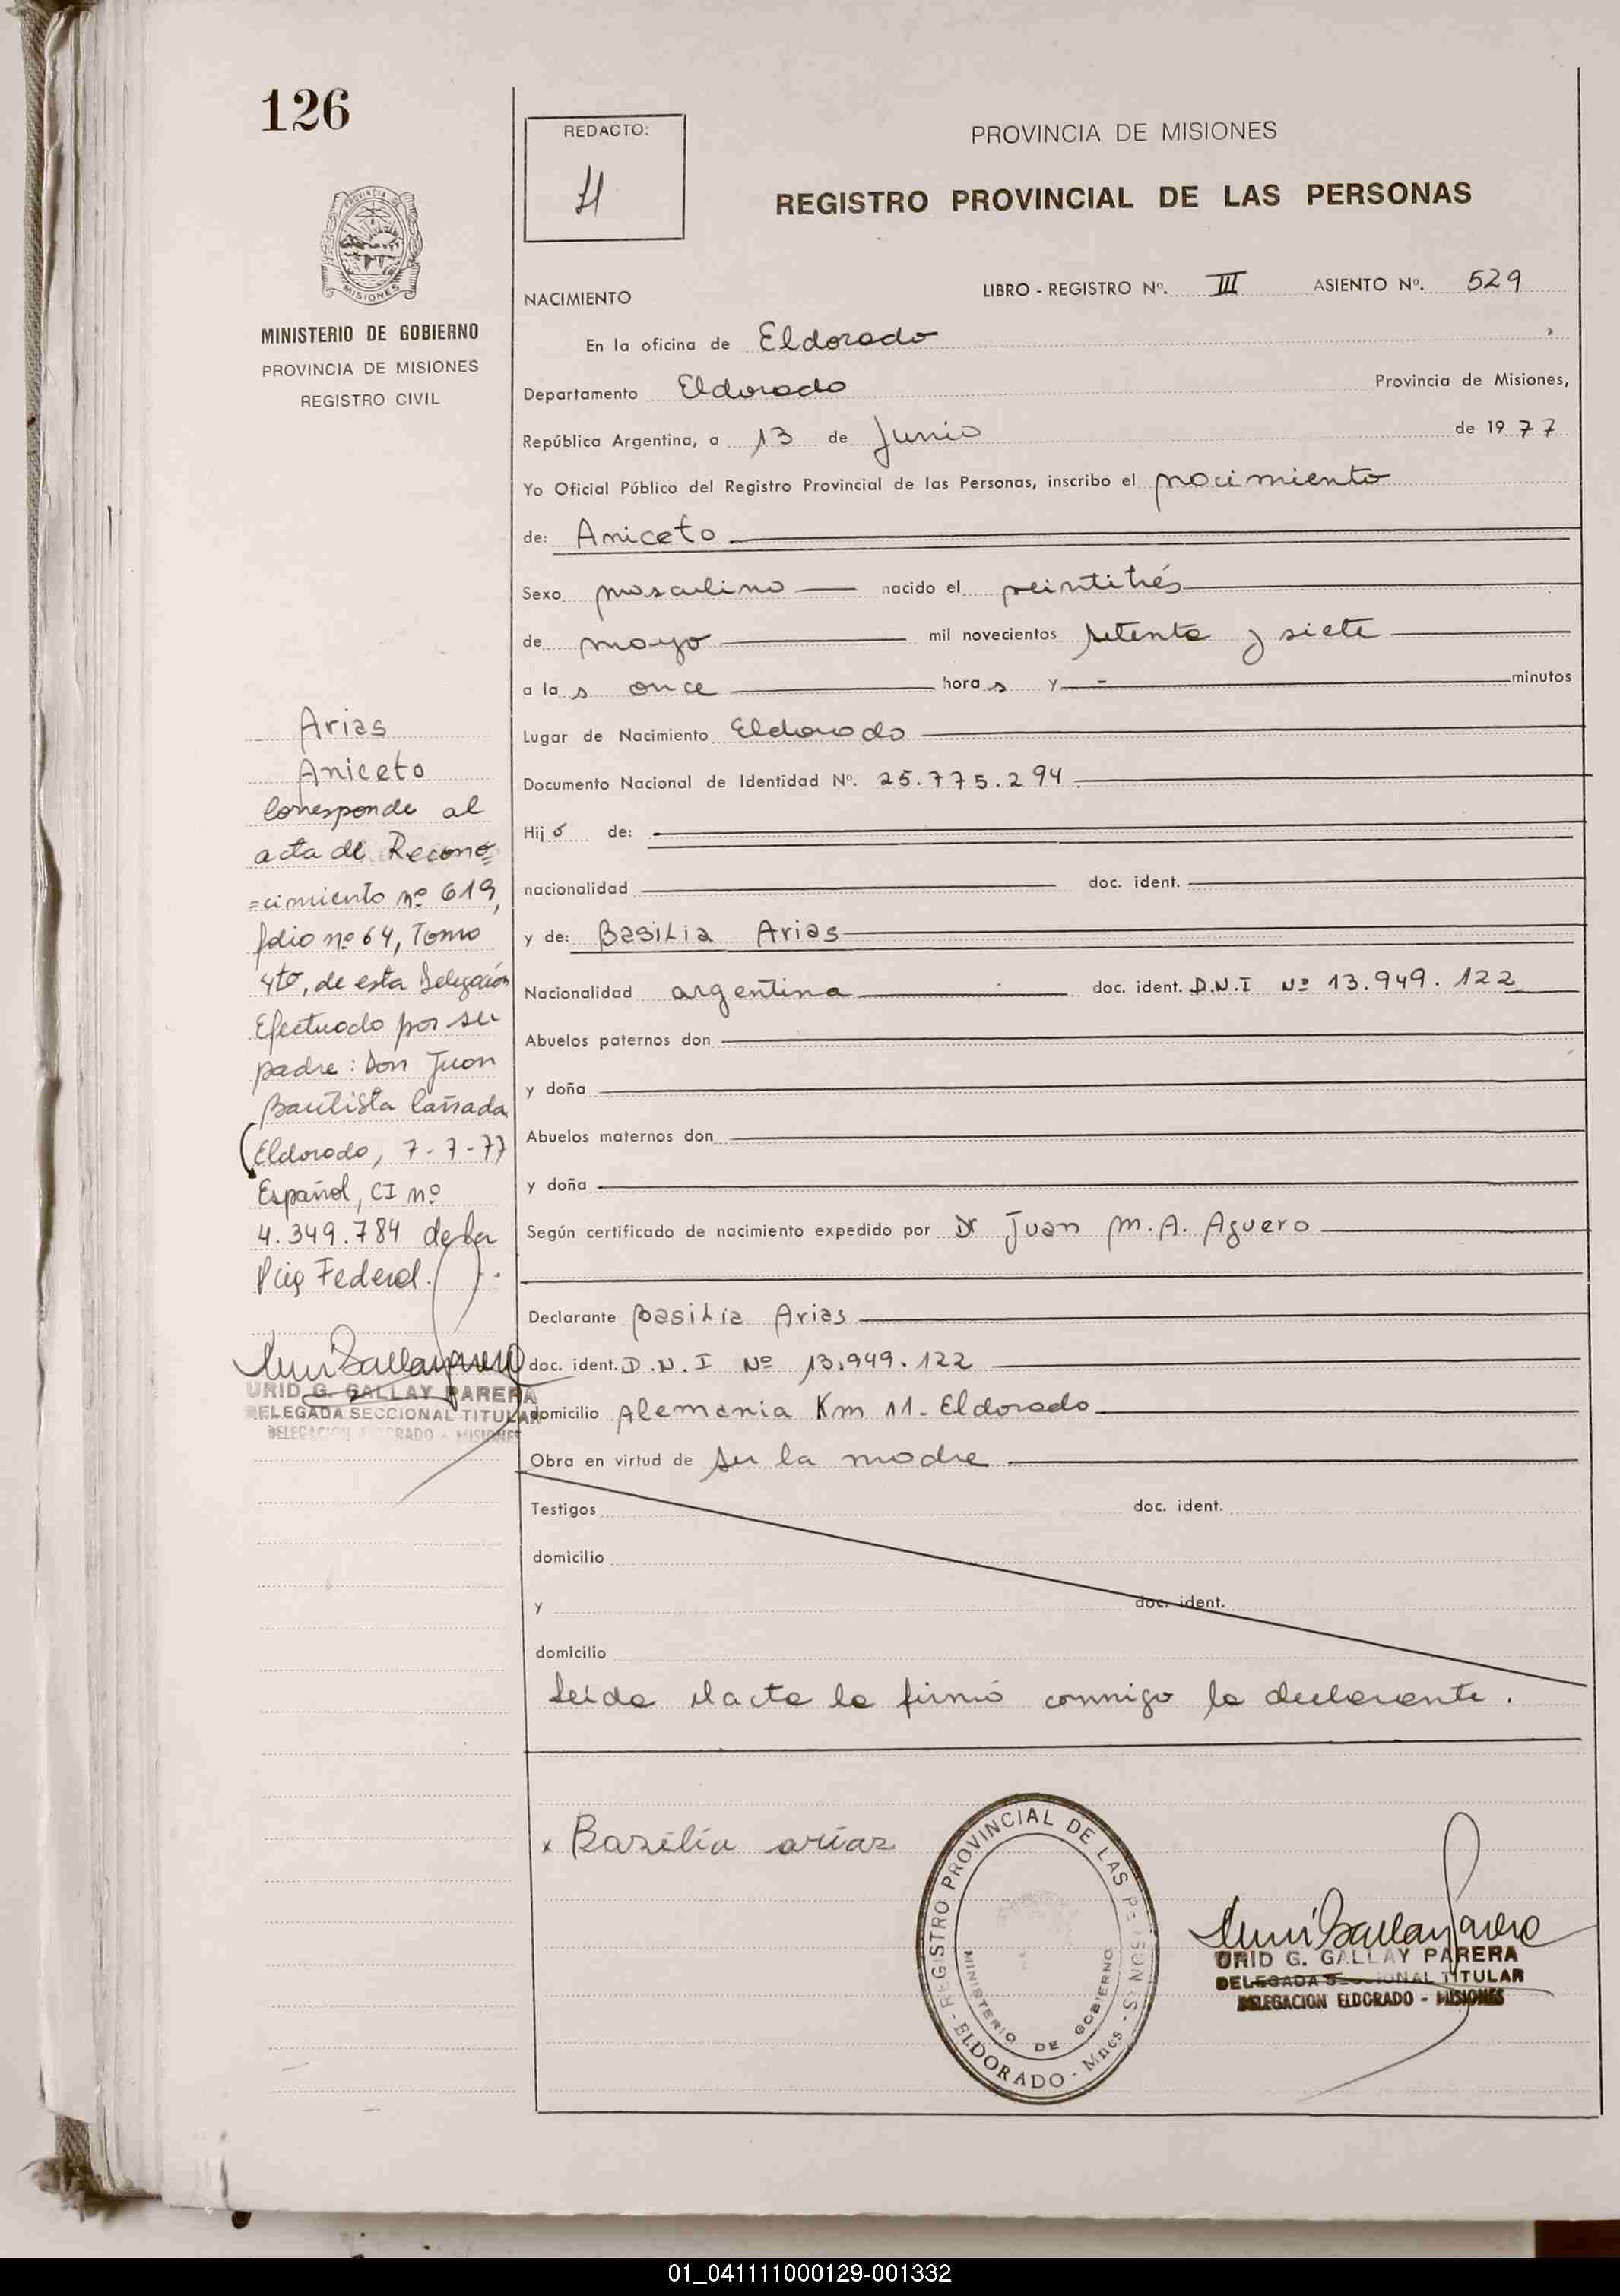 126
REDACTO:
PROVINCIA DE MISIONES
REGISTRO PROVINCIAL DE LAS PERSONAS
PROVINCIA DE
MISIONES
MINISTERIO DE GOBIERNO
PROVINCIA DE MISIONES
REGISTRO CIVIL
NACIMIENTO
LIBRO - REGISTRO Nº. III ASIENTO Nº. 529
En la oficina de Eldorado,
Departamento Eldorado Provincia de Misiones,
República Argentina, a 13 de Junio de 1977
Yo Oficial Público del Registro Provincial de las Personas, inscribo el nacimiento
de: Aniceto
Sexo masculino nacido el veintitrés
de mayo mil novecientos setenta y siete
a las once horas y - minutos
Lugar de Nacimiento Eldorado
Documento Nacional de Identidad Nº. 25.775.294
Hijo de:
nacionalidad doc. ident.
y de: Basilia Arias
Nacionalidad argentina doc. ident. D.N.I Nº 13.949.122
Abuelos paternos don
y doña
Abuelos maternos don
y doña
Según certificado de nacimiento expedido por Dr Juan M. A. Aguero
Declarante Basilia Arias
doc. ident. D.N.I Nº 13.949.122
domicilio Alemania Km 11 - Eldorado
Obra en virtud de ser la madre
Testigos doc. ident.
domicilio
y doc. ident.
domicilio
Leida el acta la firmó conmigo la declarante.
Arias
Aniceto
Corresponde al
acta de Recono=
=cimiento nº 619,
folio nº 64, Tomo
4to, de esta Delegación
Efectuado por su
padre: Don Juan
Bautista Cañada
Eldorado, 7-7-77
Español, CI nº
4.349.784 de la
Pcia Federal.
URID G. GALLAY PARERA
DELEGADA SECCIONAL TITULAR
DELEGACION ELDORADO - MISIONES
x Basilia arias
REGISTRO PROVINCIAL DE LAS PERSONAS - ELDORADO - Mnes -
MINISTERIO DE GOBIERNO
URID G. GALLAY PARERA
DELEGADA SECCIONAL TITULAR
DELEGACION ELDORADO - MISIONES
01_041111000129-001332